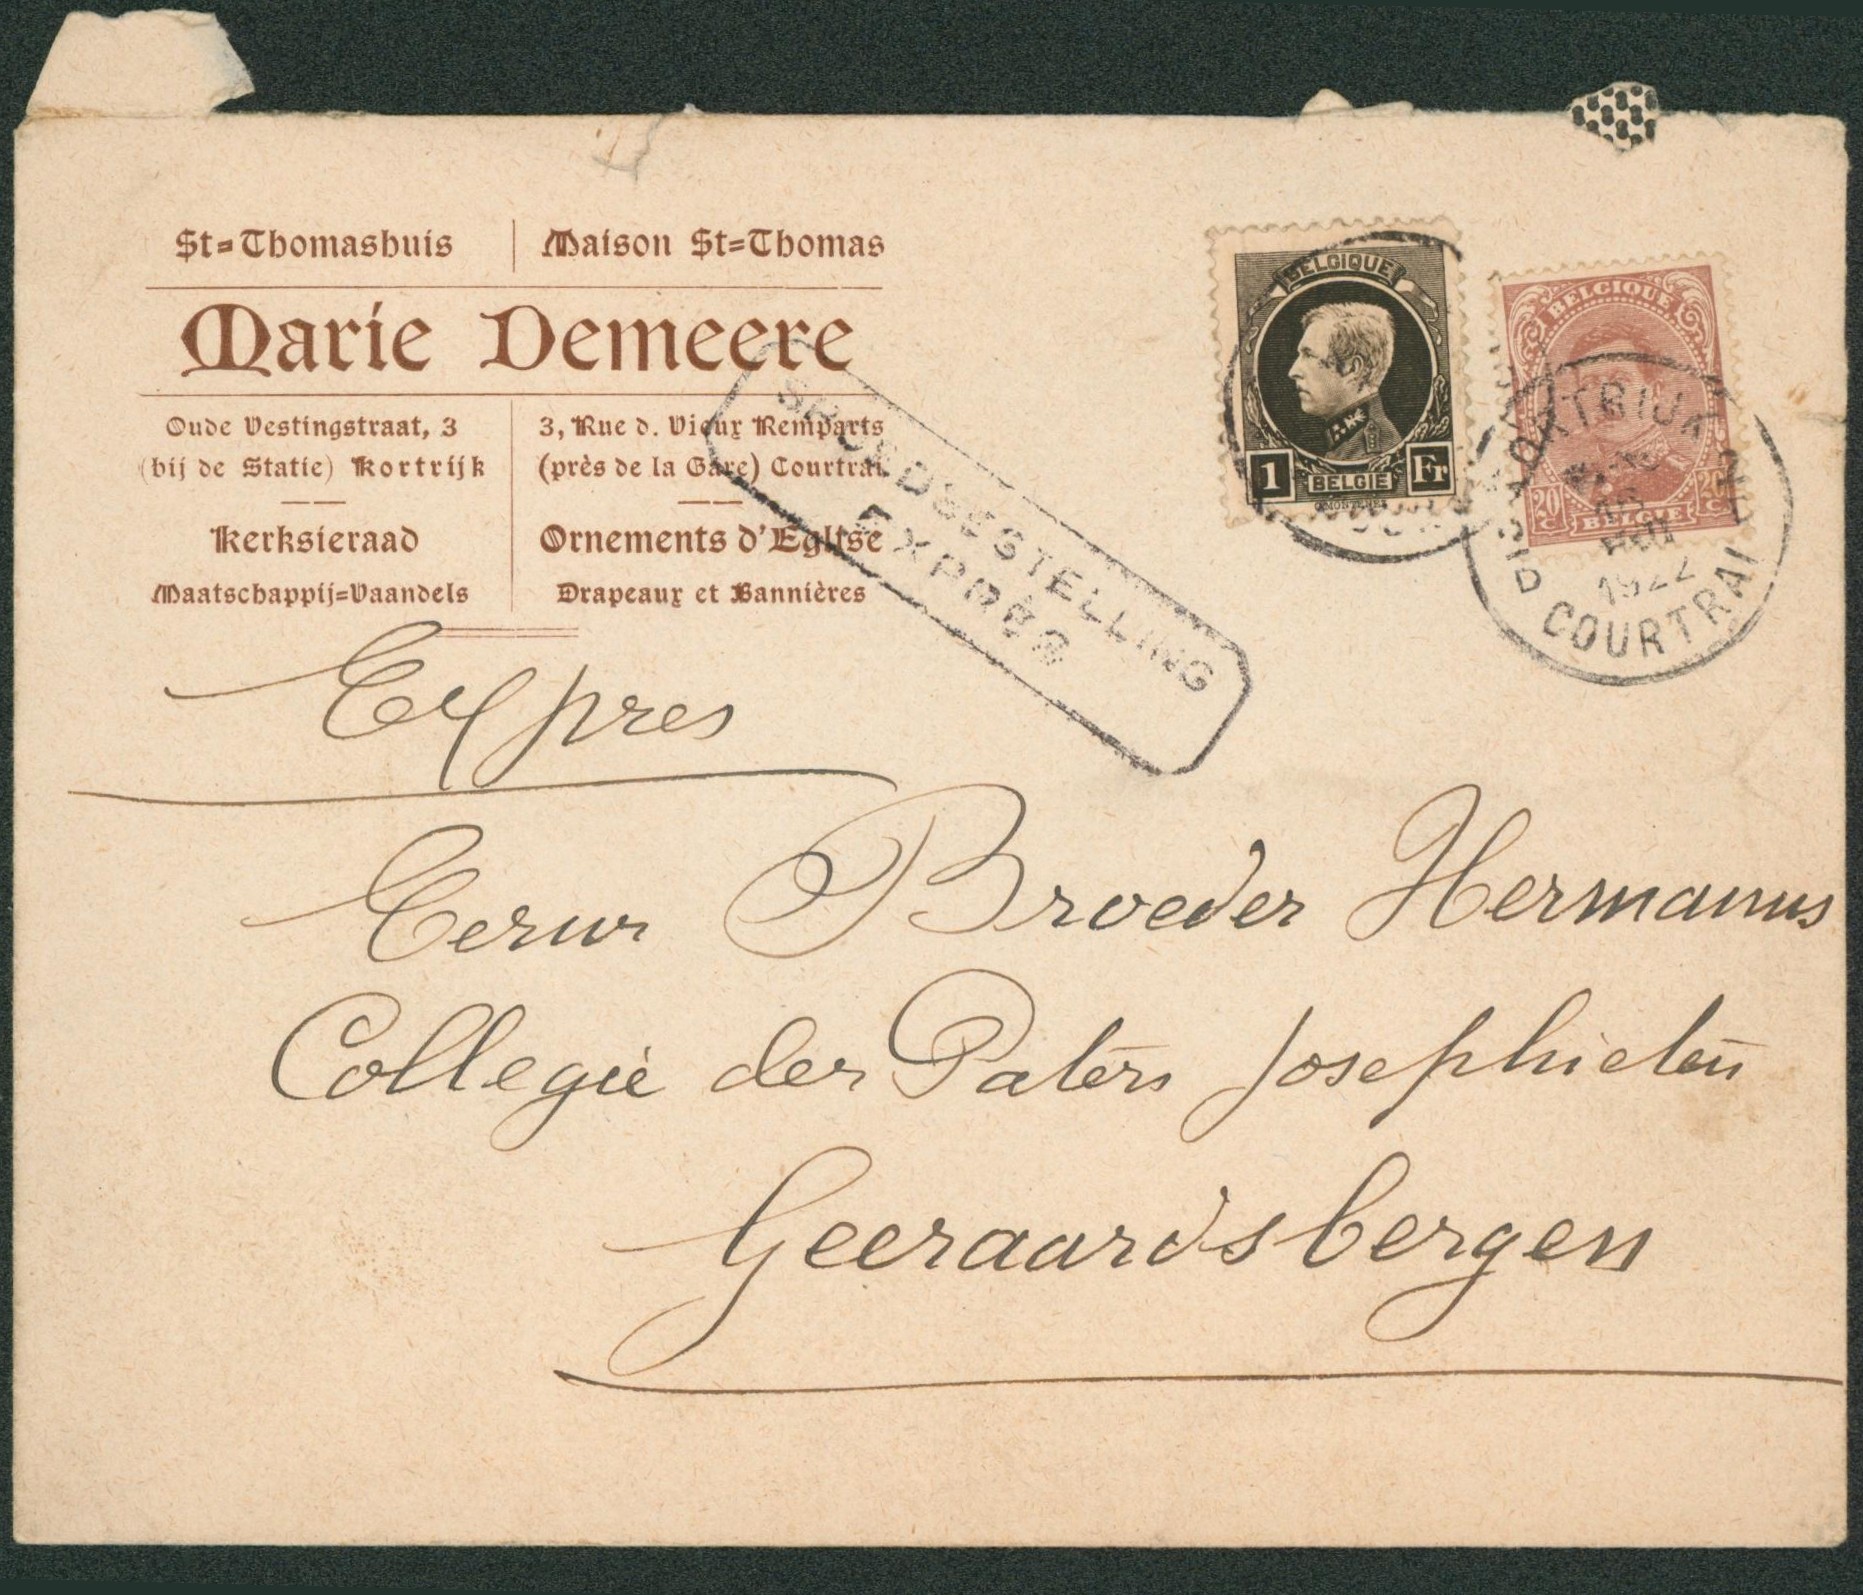 St=Thomashuis
Maison St=Thomas
Marie Demeere
Oude Vestingstraat, 3
(bij de Statie) Kortrijk
Kerksieraad
Maatschappij=Vaandels
3, Rue d. Vieux Remparts
(près de la Gare) Courtrai.
Ornements d'Eglise
Drapeaux et Bannières
SPOEDBESTELLING
EXPRES
BELGIQUE
1 BELGIE Fr
BELGIQUE
20 C BELGIE 20 C
KORTRIJK
1922
COURTRAI
Expres
Eerw Broeder Hermanus
Collegie der Paters Josephieten
Geeraardsbergen